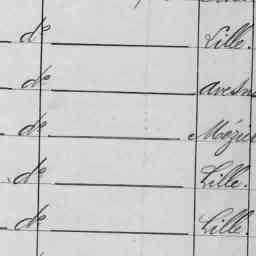 do Lille.
do Avesn
do Méziè
do Lille.
do Lille.